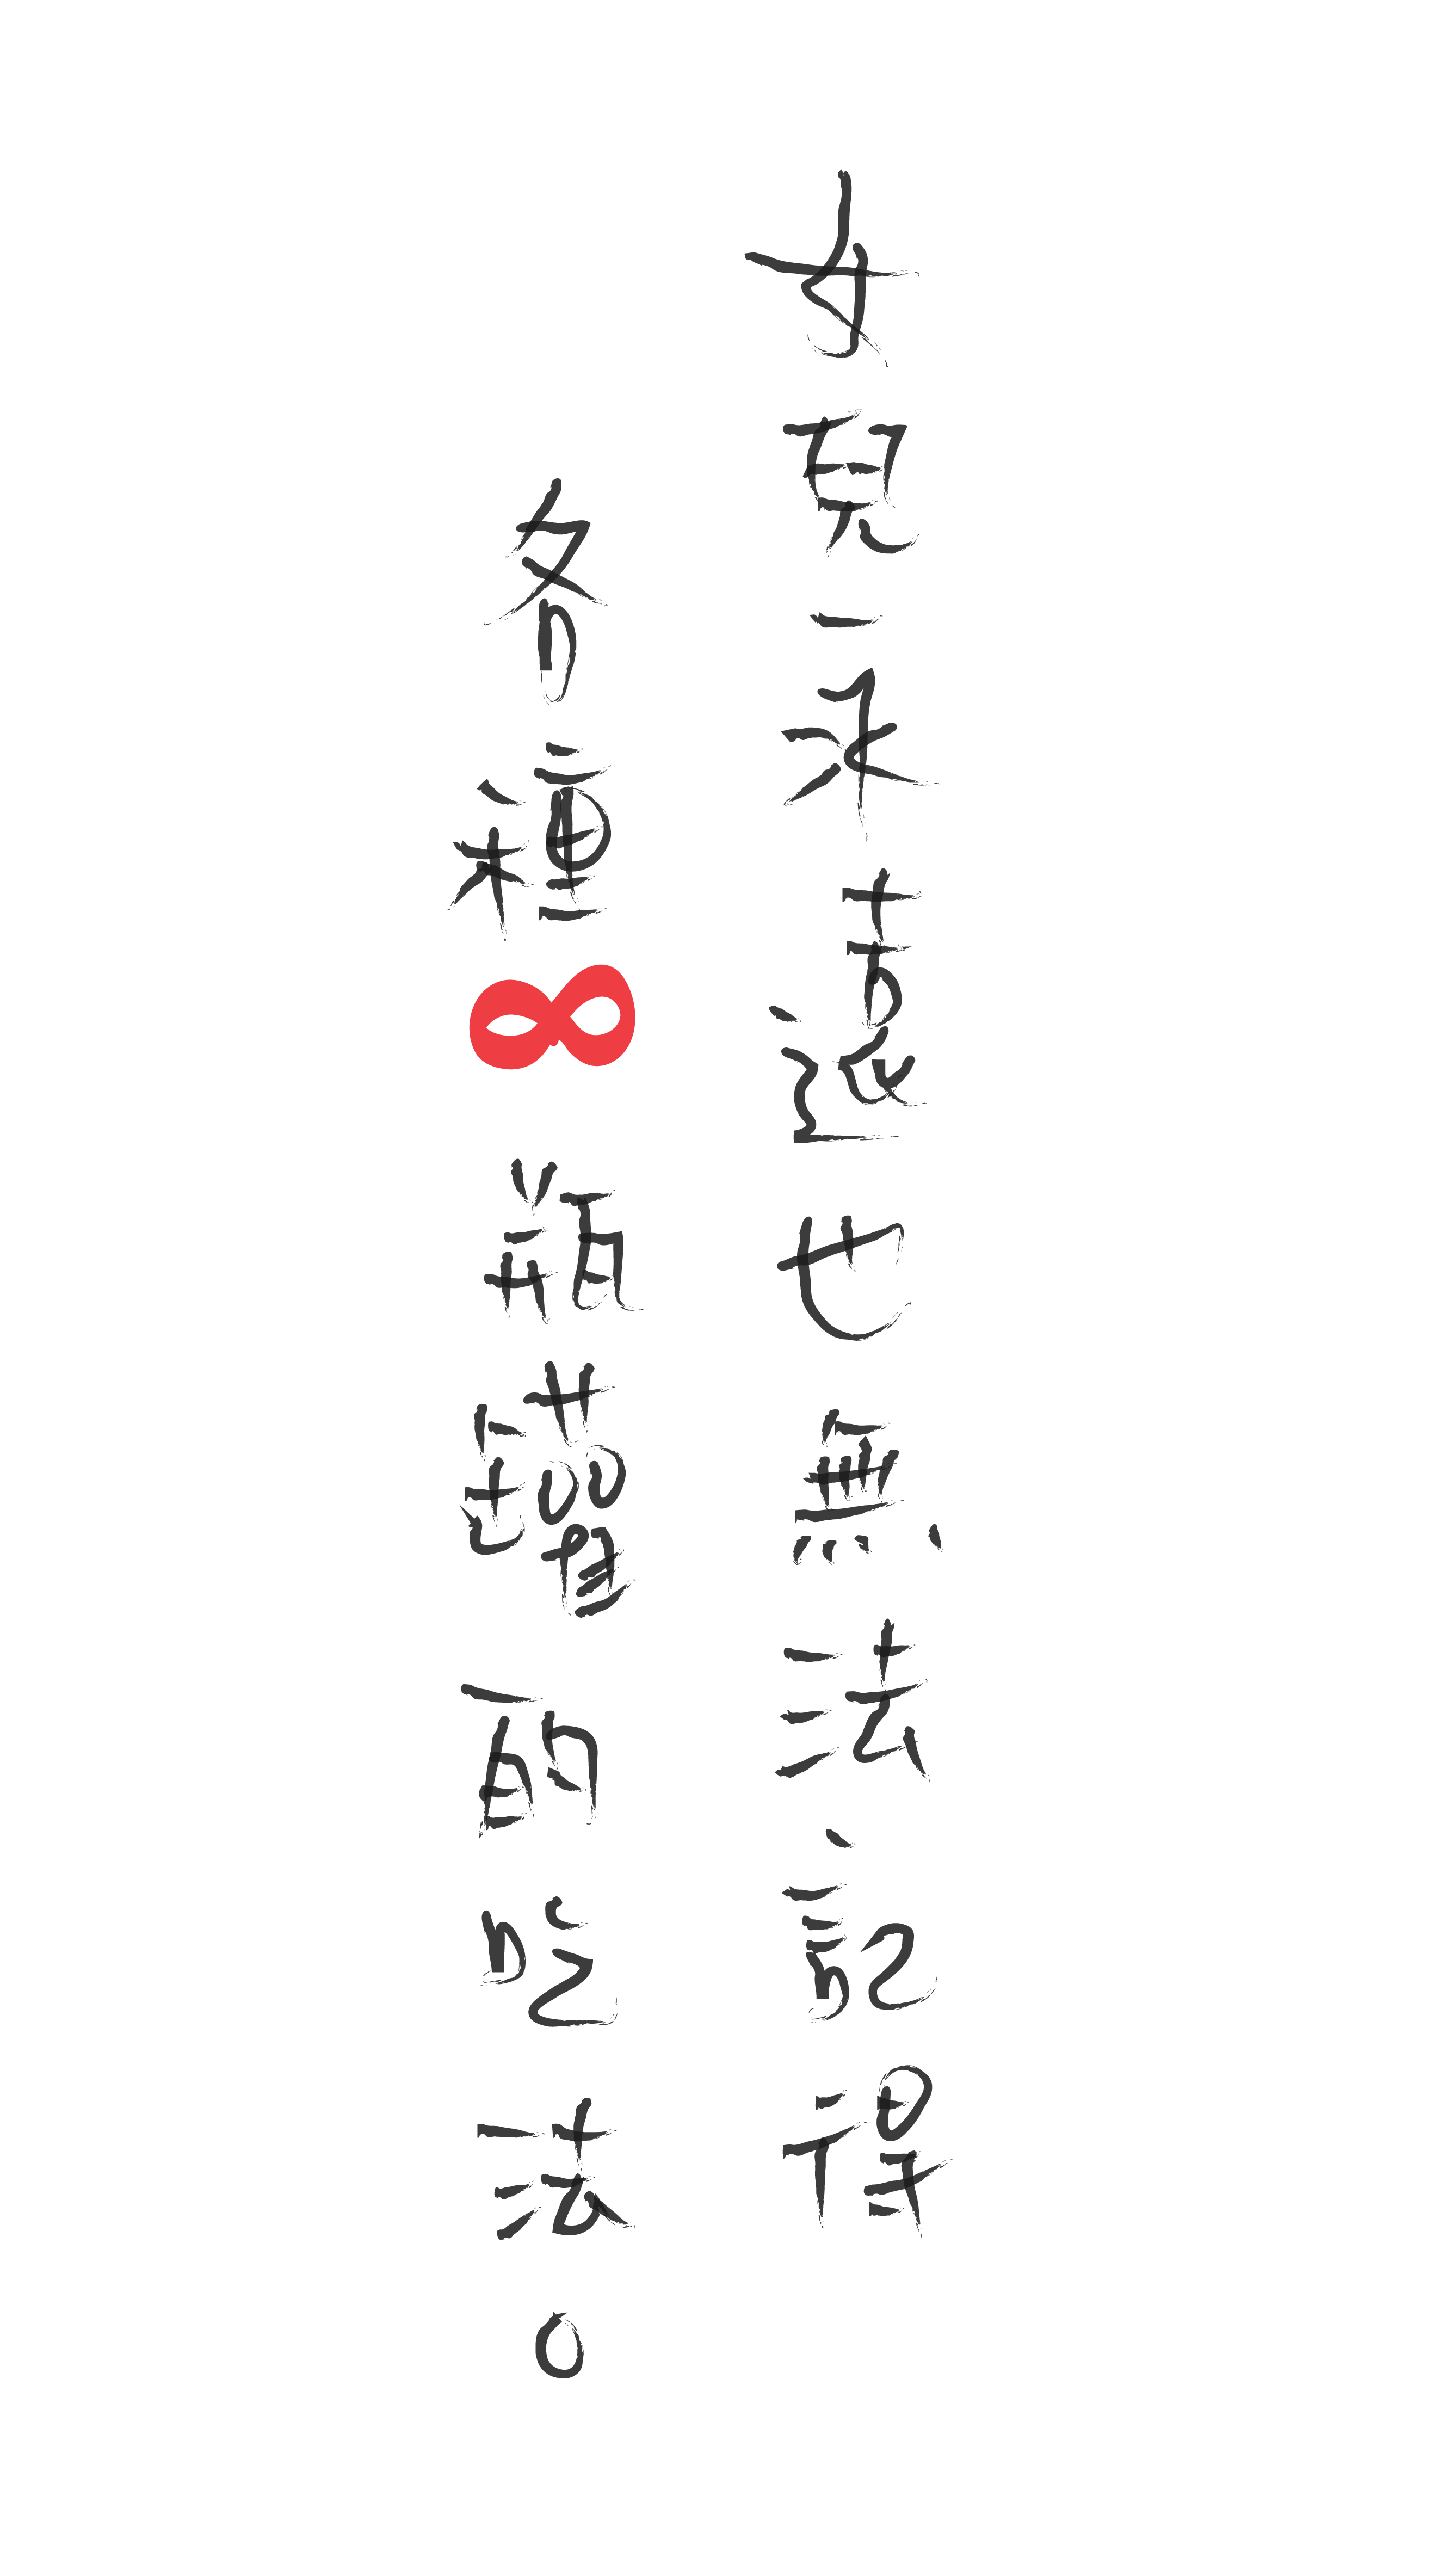 女兒永遠也無法記得
各種∞瓶罐的吃法。